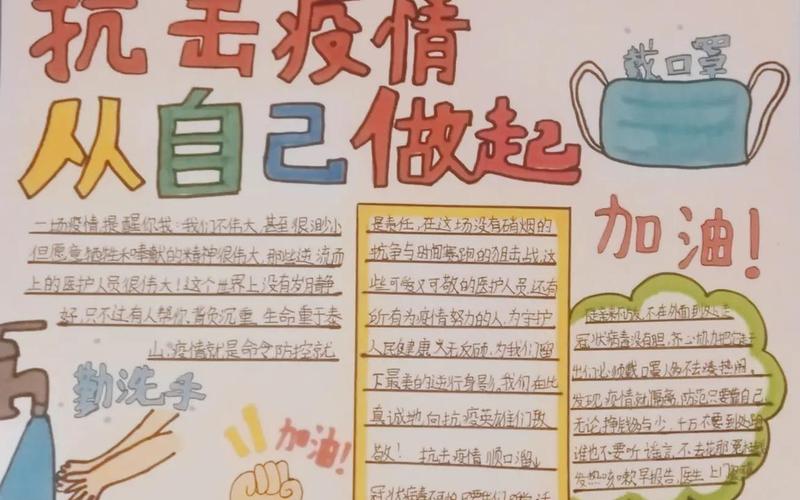 抗击疫情
从自己做起
戴口罩
加油!
一场疫情,提醒你我:我们不伟大,甚至很渺小
但愿意牺牲和奉献的精神很伟大,那些逆流而
上的医护人员很伟大!这个世界上没有岁月静
好,只不过有人帮你背负沉重 生命重于泰
山,疫情就是命令防控就
勤洗手
加油!
是责任,在这场没有硝烟的
抗争与时间赛跑的狙击战,这
些可爱又可敬的医护人员,还有
所有为疫情努力的人,为守护
人民健康 义无反顾,为我们留
下最美的逆行身影,我们在此
真诚地,向抗疫英雄们致
敬! 抗击疫情 顺口溜
冠状病毒不可怕
不在外面到处走
冠状病毒没有胆,齐心协力把它
出们必须戴口罩人多不去凑热闹。
发现疫情就 防范只要靠自己
无论挣钱多与少,千万不要到处跑
谁也不要听谣言,不去花那
发热咳嗽早报告,医生上门